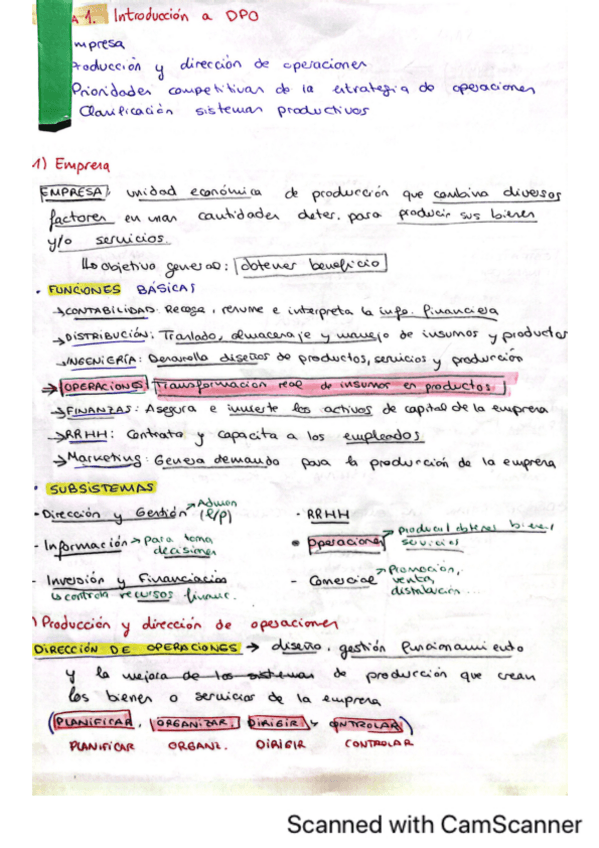 A 1. Introducción a DPO
mpresa
roducción y dirección de operaciones
Prioridades competitivas de la estrategia de operaciones
Clasificación sistemas productivos
1) Empresa
EMPRESA: unidad económica de producción que combina diversos
factores en unas cantidades deter. para producir sus bienes
y/o servicios.
↳ objetivo general: obtener beneficio
• FUNCIONES BÁSICAS
→ CONTABILIDAD: Recoge, resume e interpreta la info. financiera
→ DISTRIBUCIÓN: Traslado, almacenaje y manejo de insumos y productos
→ INGENIERÍA: Desarrolla diseños de productos, servicios y producción
→ OPERACIONES Transformación real de insumos en productos
→ FINANZAS: Asegura e invierte los activos de capital de la empresa
→ RRHH: Contrata y capacita a los empleados
→ Marketing: Genera demanda para la producción de la empresa
• SUBSISTEMAS
- Dirección y Gestión → Admon (l/p)
- RRHH
- Información → para toma decisiones
• Operaciones → producir/obtener bienes/ servicios
- Inversión y Financiación
↳ controla recursos financ.
- Comercial → Promoción, venta, distribución ...
) Producción y dirección de operaciones
DIRECCIÓN DE OPERACIONES → diseño, gestión funcionamiento
y la mejora de los sistemas de producción que crean
los bienes o servicios de la empresa
(PLANIFICAR, ORGANIZAR, DIRIGIR y CONTROLAR)
PLANIFICAR ORGANIZ. DIRIGIR CONTROLAR
Scanned with CamScanner